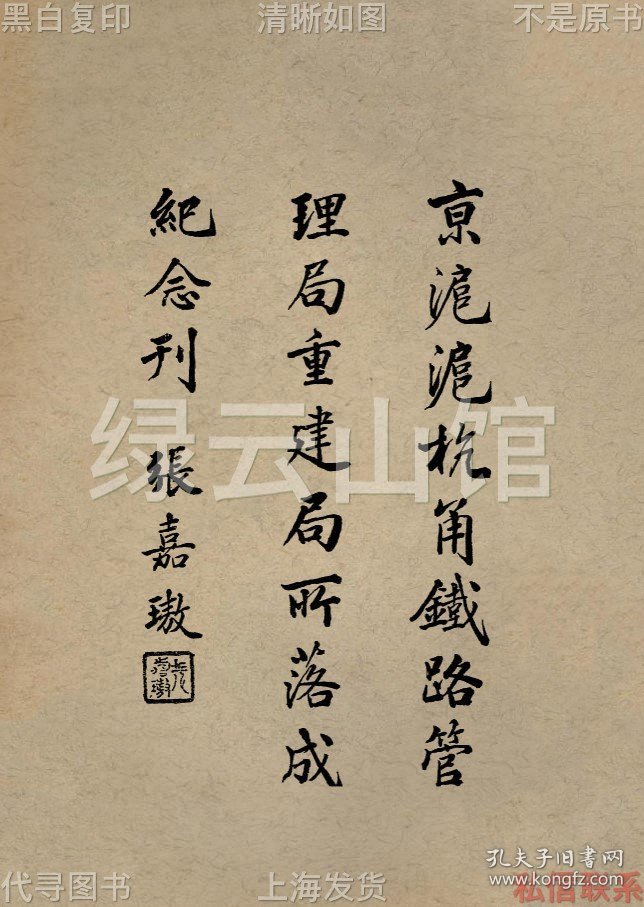 黑白复印 清晰如图 不是原书
京滬滬杭甬鐵路管
理局重建局所落成
紀念刊 張嘉璈
绿云山馆
孔夫子旧书网
www.kongfz.com
代寻图书 上海发货 私信联系